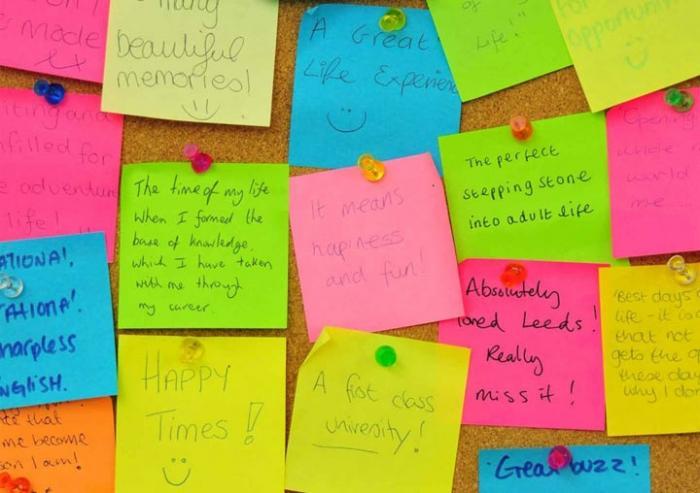 made
xx
many
beautiful
memories!
A Great
Life Experien
of
life!
for
opportunity
iting and
nfilled for
e adventure
life!
The time of my life
when I formed the
base of knowledge,
which I have taken
with me through
my career.
It means
hapiness
and fun!
The perfect
stepping stone
into adult life
Opening
whole n
world
me....
ATIONA!,
TATIONA!
harpless
NGLISH.
Absolutely
loved Leeds!
Really
miss it!
'Best days
life - it is
that not
gets the o
these day
why I do
HAPPY
Times!
A first class
university!
te that
me become
son I am!
Great buzz!